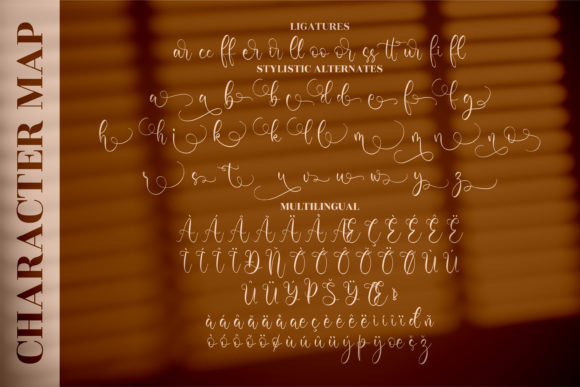 CHARACTER MAP
LIGATURES
ar cc ff er ir ll oo or ss tt ur fi fl
STYLISTIC ALTERNATES
a a b b c d d e f f g
h h i k k k l l m m n n s
r s t y v u w s y z
MULTILINGUAL
À Á Â Ã Ä Å Æ Ç È É Ê Ë
Ì Í Î Ï Ð Ñ Ò Ó Ô Õ Ö Ø Ù Ú
Û Ü Ý P Š Ÿ Œ þ
à á â ã ä å æ ç è é ê ë ì í î ï đ ñ
ò ó ô õ ö ø ù ú û ü ý þ ÿ œ š ž